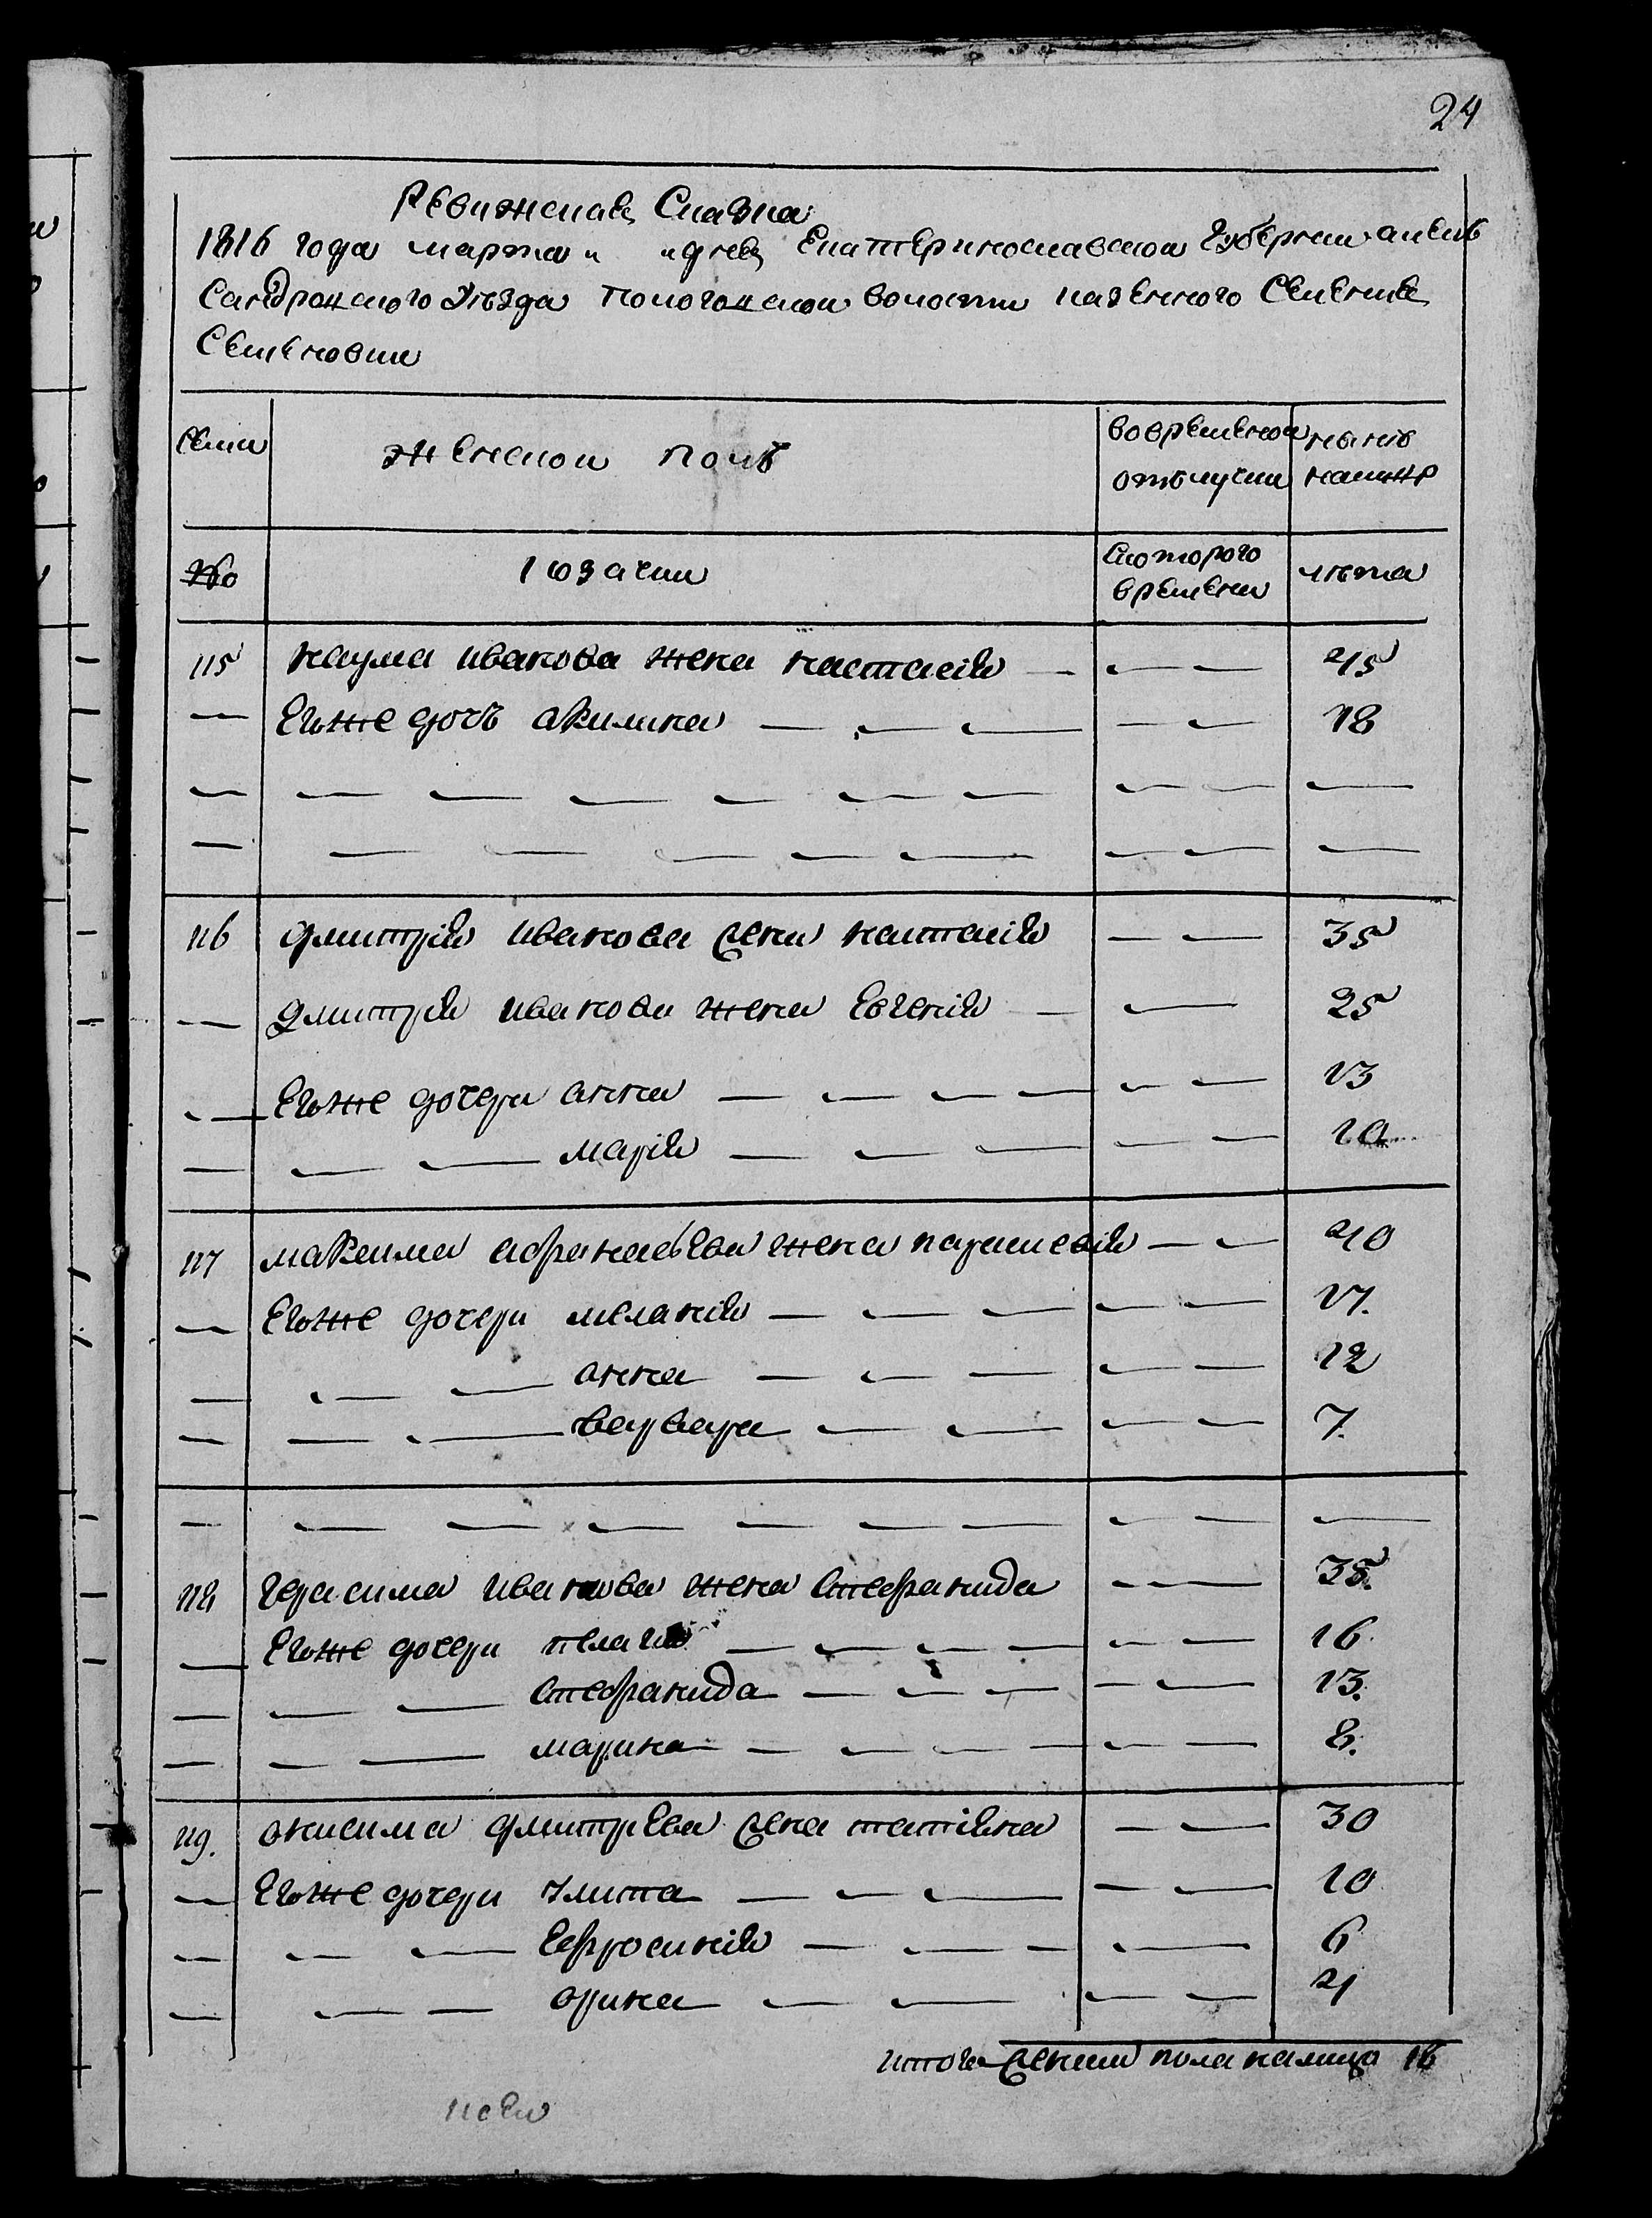 24
Ревижская Сказка
1816 года марта „ „ дня Екатеринославской Губернии алекъ
сандровского Уезда Пологовской волости казенного Селения
Семеновки
Семи
женской полъ
во временной отълучки
ныне налицо
№о
Козачки
Скоторого времени
лета
115 наума иванова жена настасия — — — 45
— Егоже дочь акилина — — — — — 18
— — — — — — — — — —
— — — — — — — — — —
116 дмитрия иванова жена настасия — — 35
— дмитрия иванова жена Евгения — — 25
— Егоже дочери анна — — — — — — 13
— — — мария — — — — — 10
117 максима афанасьева жена параскевия — — 40
— Егоже дочери мелания — — — — — 17.
— — — анна — — — — — 12
— — — варвара — — — — 7.
— — — — — — — — — —
118 герасима иванова жена Стефанида — — 35.
— Егоже дочери пелагия — — — — — — 16.
— — — Стефанида — — — — — 13.
— — — марина — — — — — — 8.
119. онисима дмитриева жена татияна — — 30
— Егоже дочери улита — — — — — 10
— — — Ефросиния — — — — 6
— — — орина — — — — 4
итого женска пола налицо 16